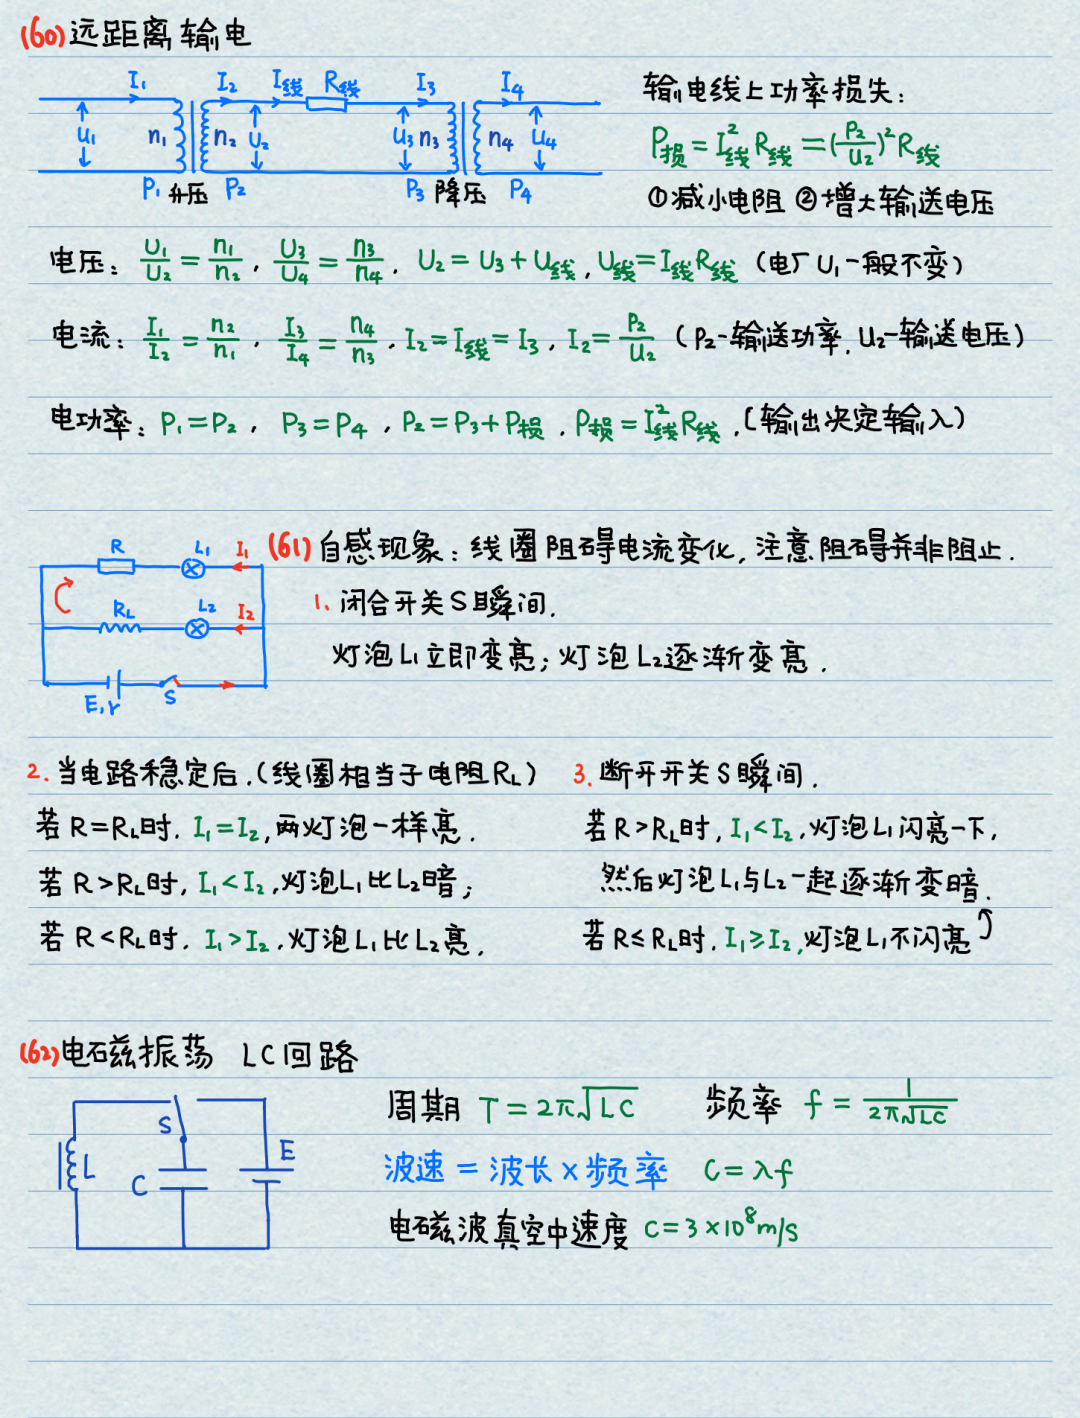 (60)远距离输电
I₁ I₂ I线 R线 I₃ I₄
U₁ n₁ n₂ U₂ U₃ n₃ n₄ U₄
P₁ 升压 P₂ P₃ 降压 P₄
输电线上功率损失:
P损=I线²R线=(P₂/U₂)²R线
①减小电阻 ②增大输送电压
电压: U₁/U₂=n₁/n₂, U₃/U₄=n₃/n₄, U₂=U₃+U线, U线=I线R线 (电厂U₁一般不变)
电流: I₁/I₂=n₂/n₁, I₃/I₄=n₄/n₃, I₂=I线=I₃, I₂=P₂/U₂ (P₂-输送功率, U₂-输送电压)
电功率: P₁=P₂, P₃=P₄, P₂=P₃+P损, P损=I线²R线, (输出决定输入)
(61)自感现象:线圈阻碍电流变化,注意阻碍并非阻止.
R L₁ I₁
R_L L₂ I₂
E,r S
1.闭合开关S瞬间.
灯泡L₁立即变亮;灯泡L₂逐渐变亮.
2.当电路稳定后.(线圈相当于电阻R_L)
若R=R_L时, I₁=I₂,两灯泡一样亮.
若R>R_L时, I₁<I₂,灯泡L₁比L₂暗;
若R<R_L时, I₁>I₂,灯泡L₁比L₂亮.
3.断开开关S瞬间.
若R>R_L时, I₁<I₂,灯泡L₁闪亮一下,
然后灯泡L₁与L₂一起逐渐变暗.
若R≤R_L时, I₁≥I₂,灯泡L₁不闪亮
(62)电磁振荡 LC回路
S
L C E
周期 T=2π√LC 频率 f=1/2π√LC
波速=波长×频率 C=λf
电磁波真空中速度 c=3×10⁸m/s